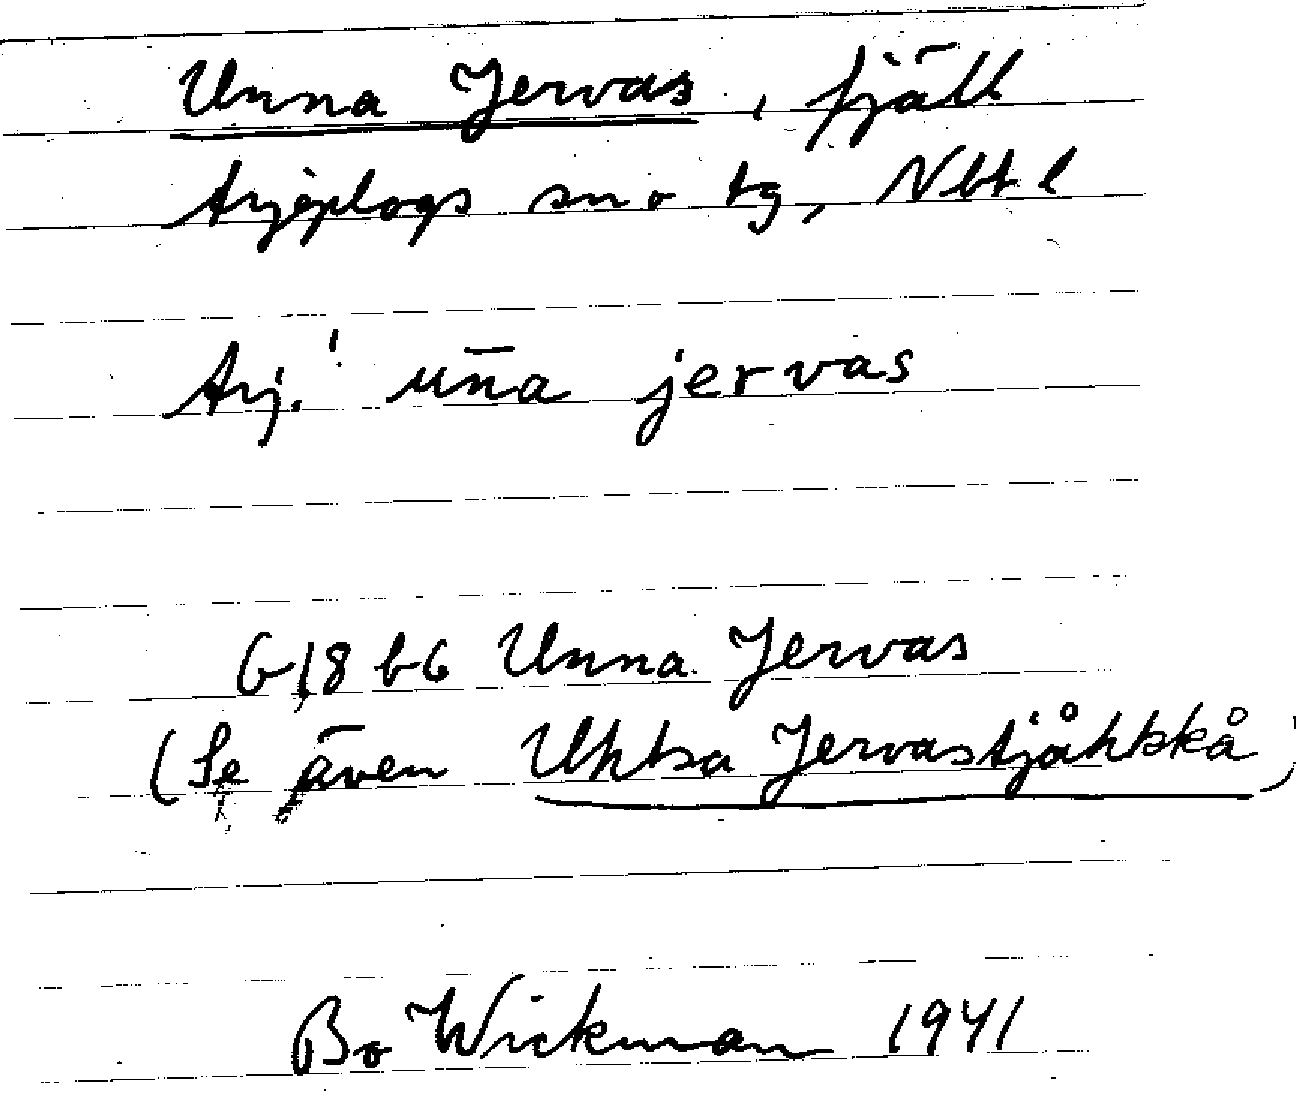 Unna Jervas, fjäll
Arjeplogs sn o tg, Nbt l
Arj.! un̄a jervas
G 18 b6 Unna Jervas
(Se även Uhtsa Jervastjåhkkå)
Bo Wickman 1941